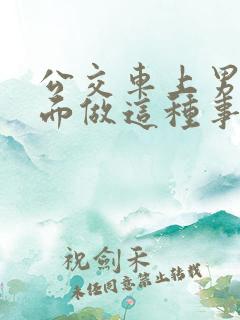 公交車上男
而做這種事
祝劍禾
未經同意禁止轉載